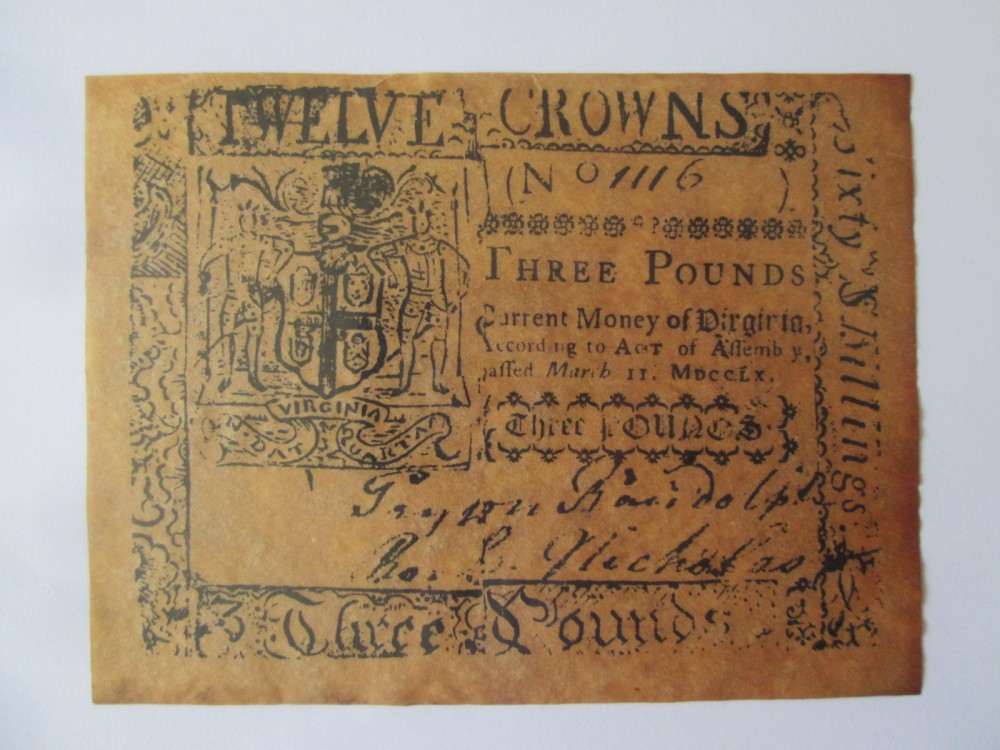 TWELVE CROWNS
(No 1116)
THREE POUNDS
Current Money of Virginia,
According to ACT of Assembly,
passed March 11. MDCCLX.
Three POUNDS
VIRGINIA
EN DAT QUARTAM
Peyton Randolph
Ro. C. Nicholas
Three Pounds
Sixty Shillings.